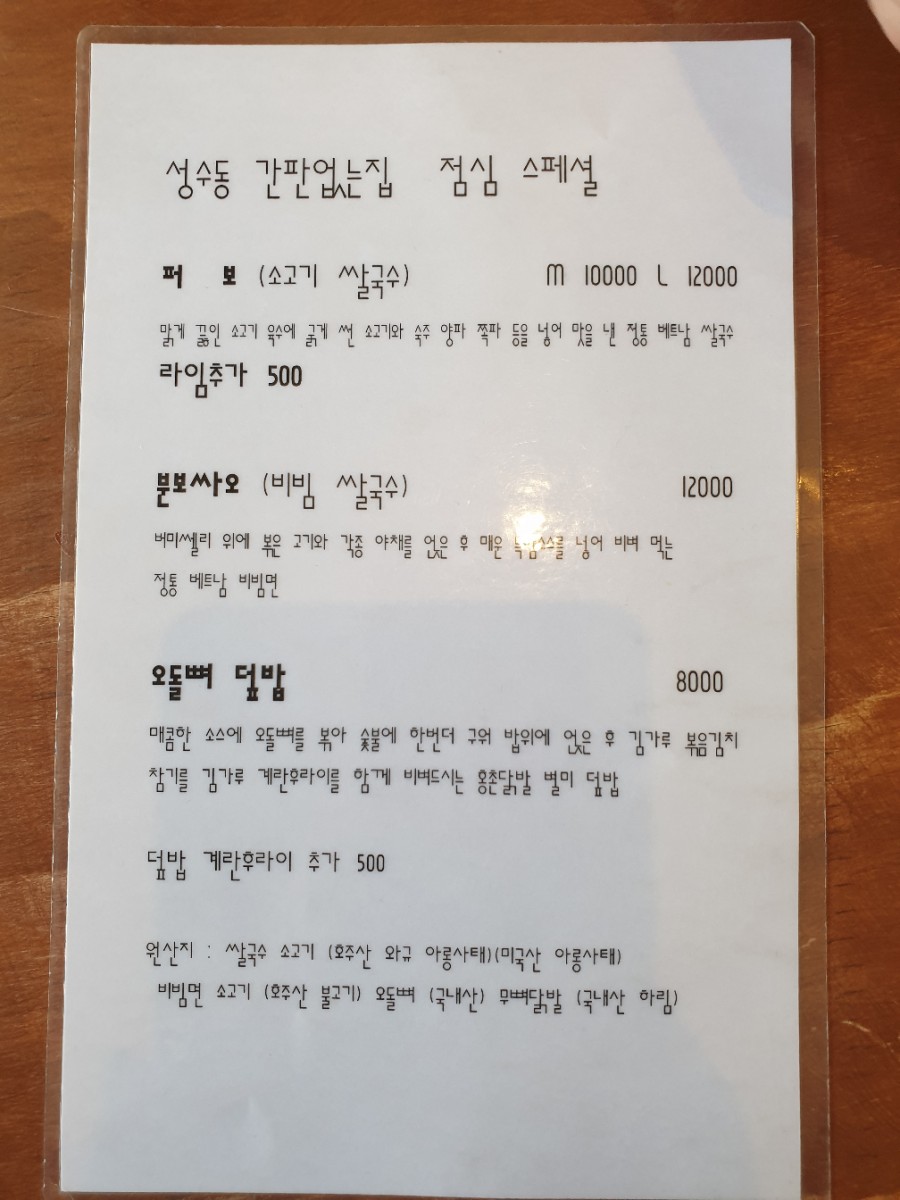 성수동 간판없는집 점심 스페셜
퍼 보 (소고기 쌀국수) M 10000 L 12000
맑게 끓인 소고기 육수에 굵게 썬 소고기와 숙주 양파 쪽파 등을 넣어 맛을 낸 정통 베트남 쌀국수
라임추가 500
분보싸오 (비빔 쌀국수) 12000
버미쎌리 위에 볶은 고기와 각종 야채를 얹은 후 매운 넣어 비벼 먹는
정통 베트남 비빔면
오돌뼈 덮밥 8000
매콤한 소스에 오돌뼈를 볶아 숯불에 한번더 구워 밥위에 얹은 후 김가루 볶음김치
참기름 김가루 계란후라이를 함께 비벼드시는 홍촌닭발 별미 덮밥
덮밥 계란후라이 추가 500
원산지 : 쌀국수 소고기 (호주산 와규 아롱사태)(미국산 아롱사태)
비빔면 소고기 (호주산 불고기) 오돌뼈 (국내산) 무뼈닭발 (국내산 하림)